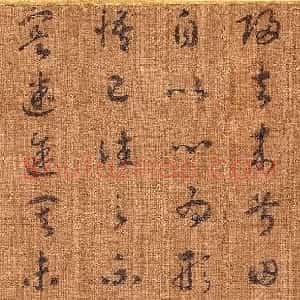 歸去來兮田
自以心為形
悟已往之不
實迷途其未